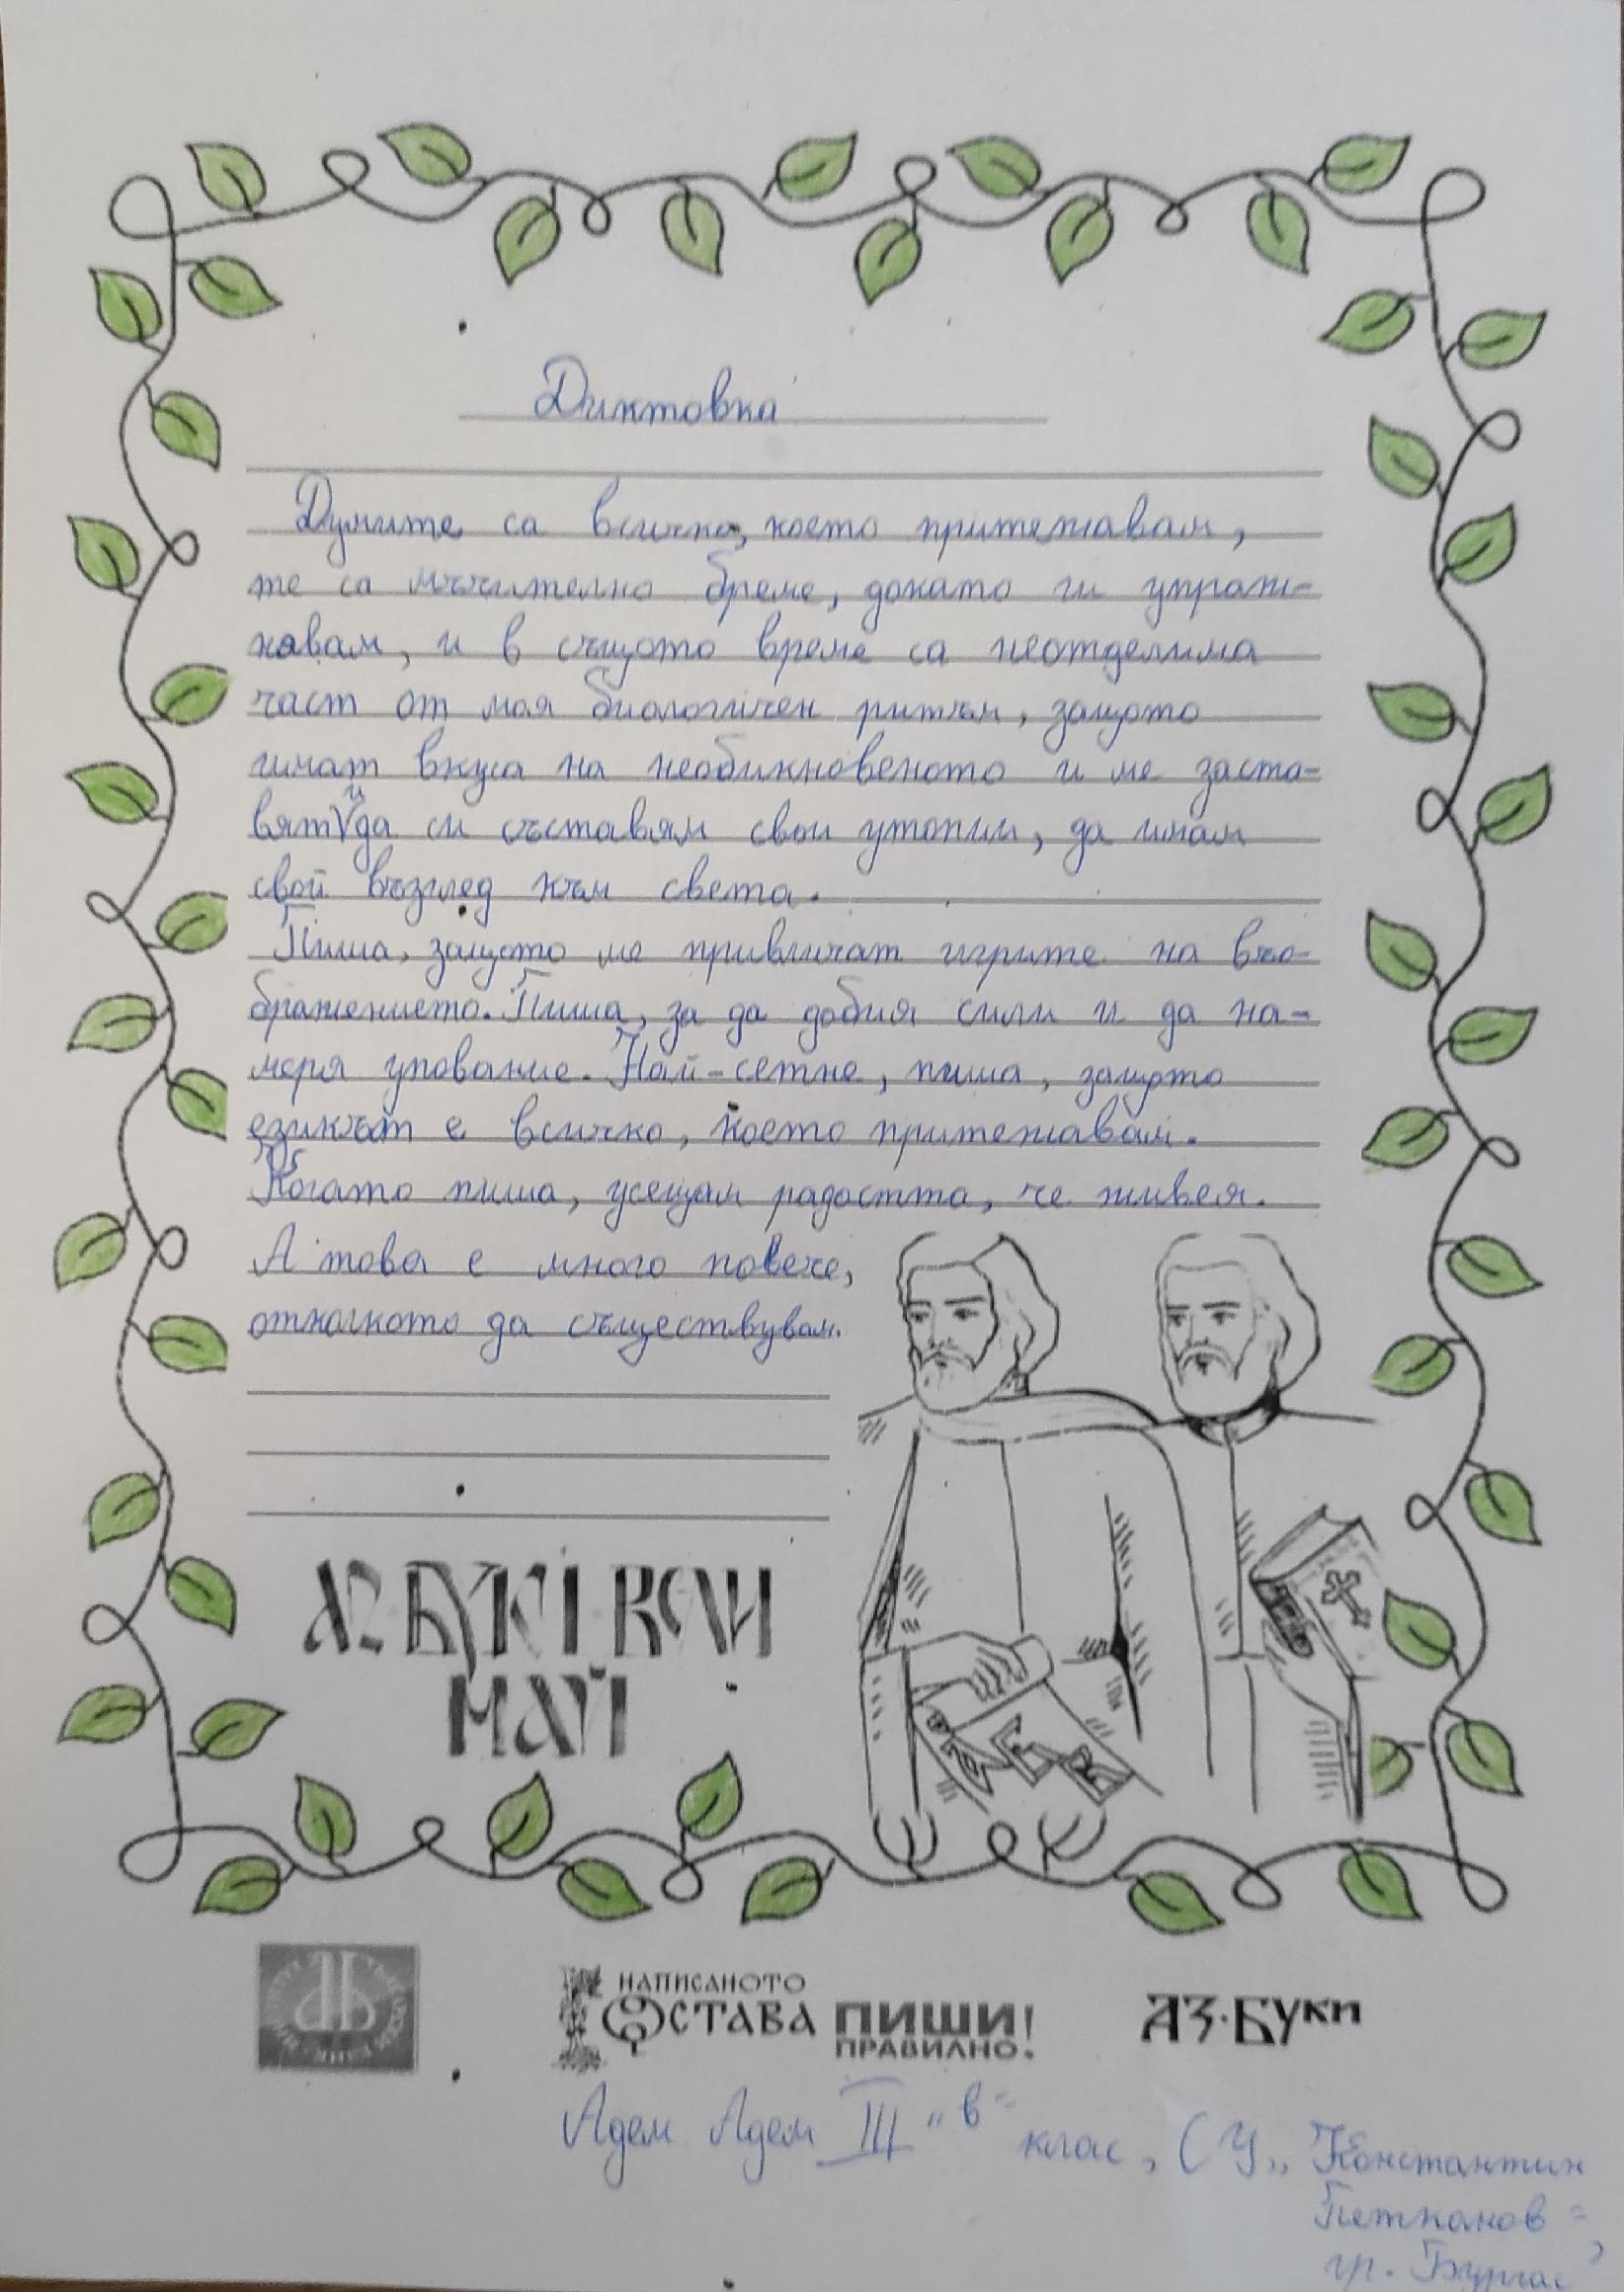 Диктовка
Думите са всичко, което притежавам,
те са мъчително бреме, докато ги упраж-
навам, и в същото време са неотделима
част от моя биологичен ритъм, защото
имат вкуса на необикновеното и ме заста-
вят и да си съставям свои утопии, да имам
свой възглед към света.
Пиша, защото ме привличат игрите на въо-
бражението. Пиша, за да добия сили и да на-
меря упование. Най-сетне, пиша, защото
езикът е всичко, което притежавам.
Когато пиша, усещам радостта, че живея.
А това е много повече,
отколкото да съществувам.
АЗ БУКИ ВЕДИ
МАЙ
НАПИСАНОТО
ОСТАВА ПИШИ
ПРАВИЛНО!
АЗ·БУКИ
Адем Адем III "в" клас, СУ "Константин
Петканов"
гр. Бургас